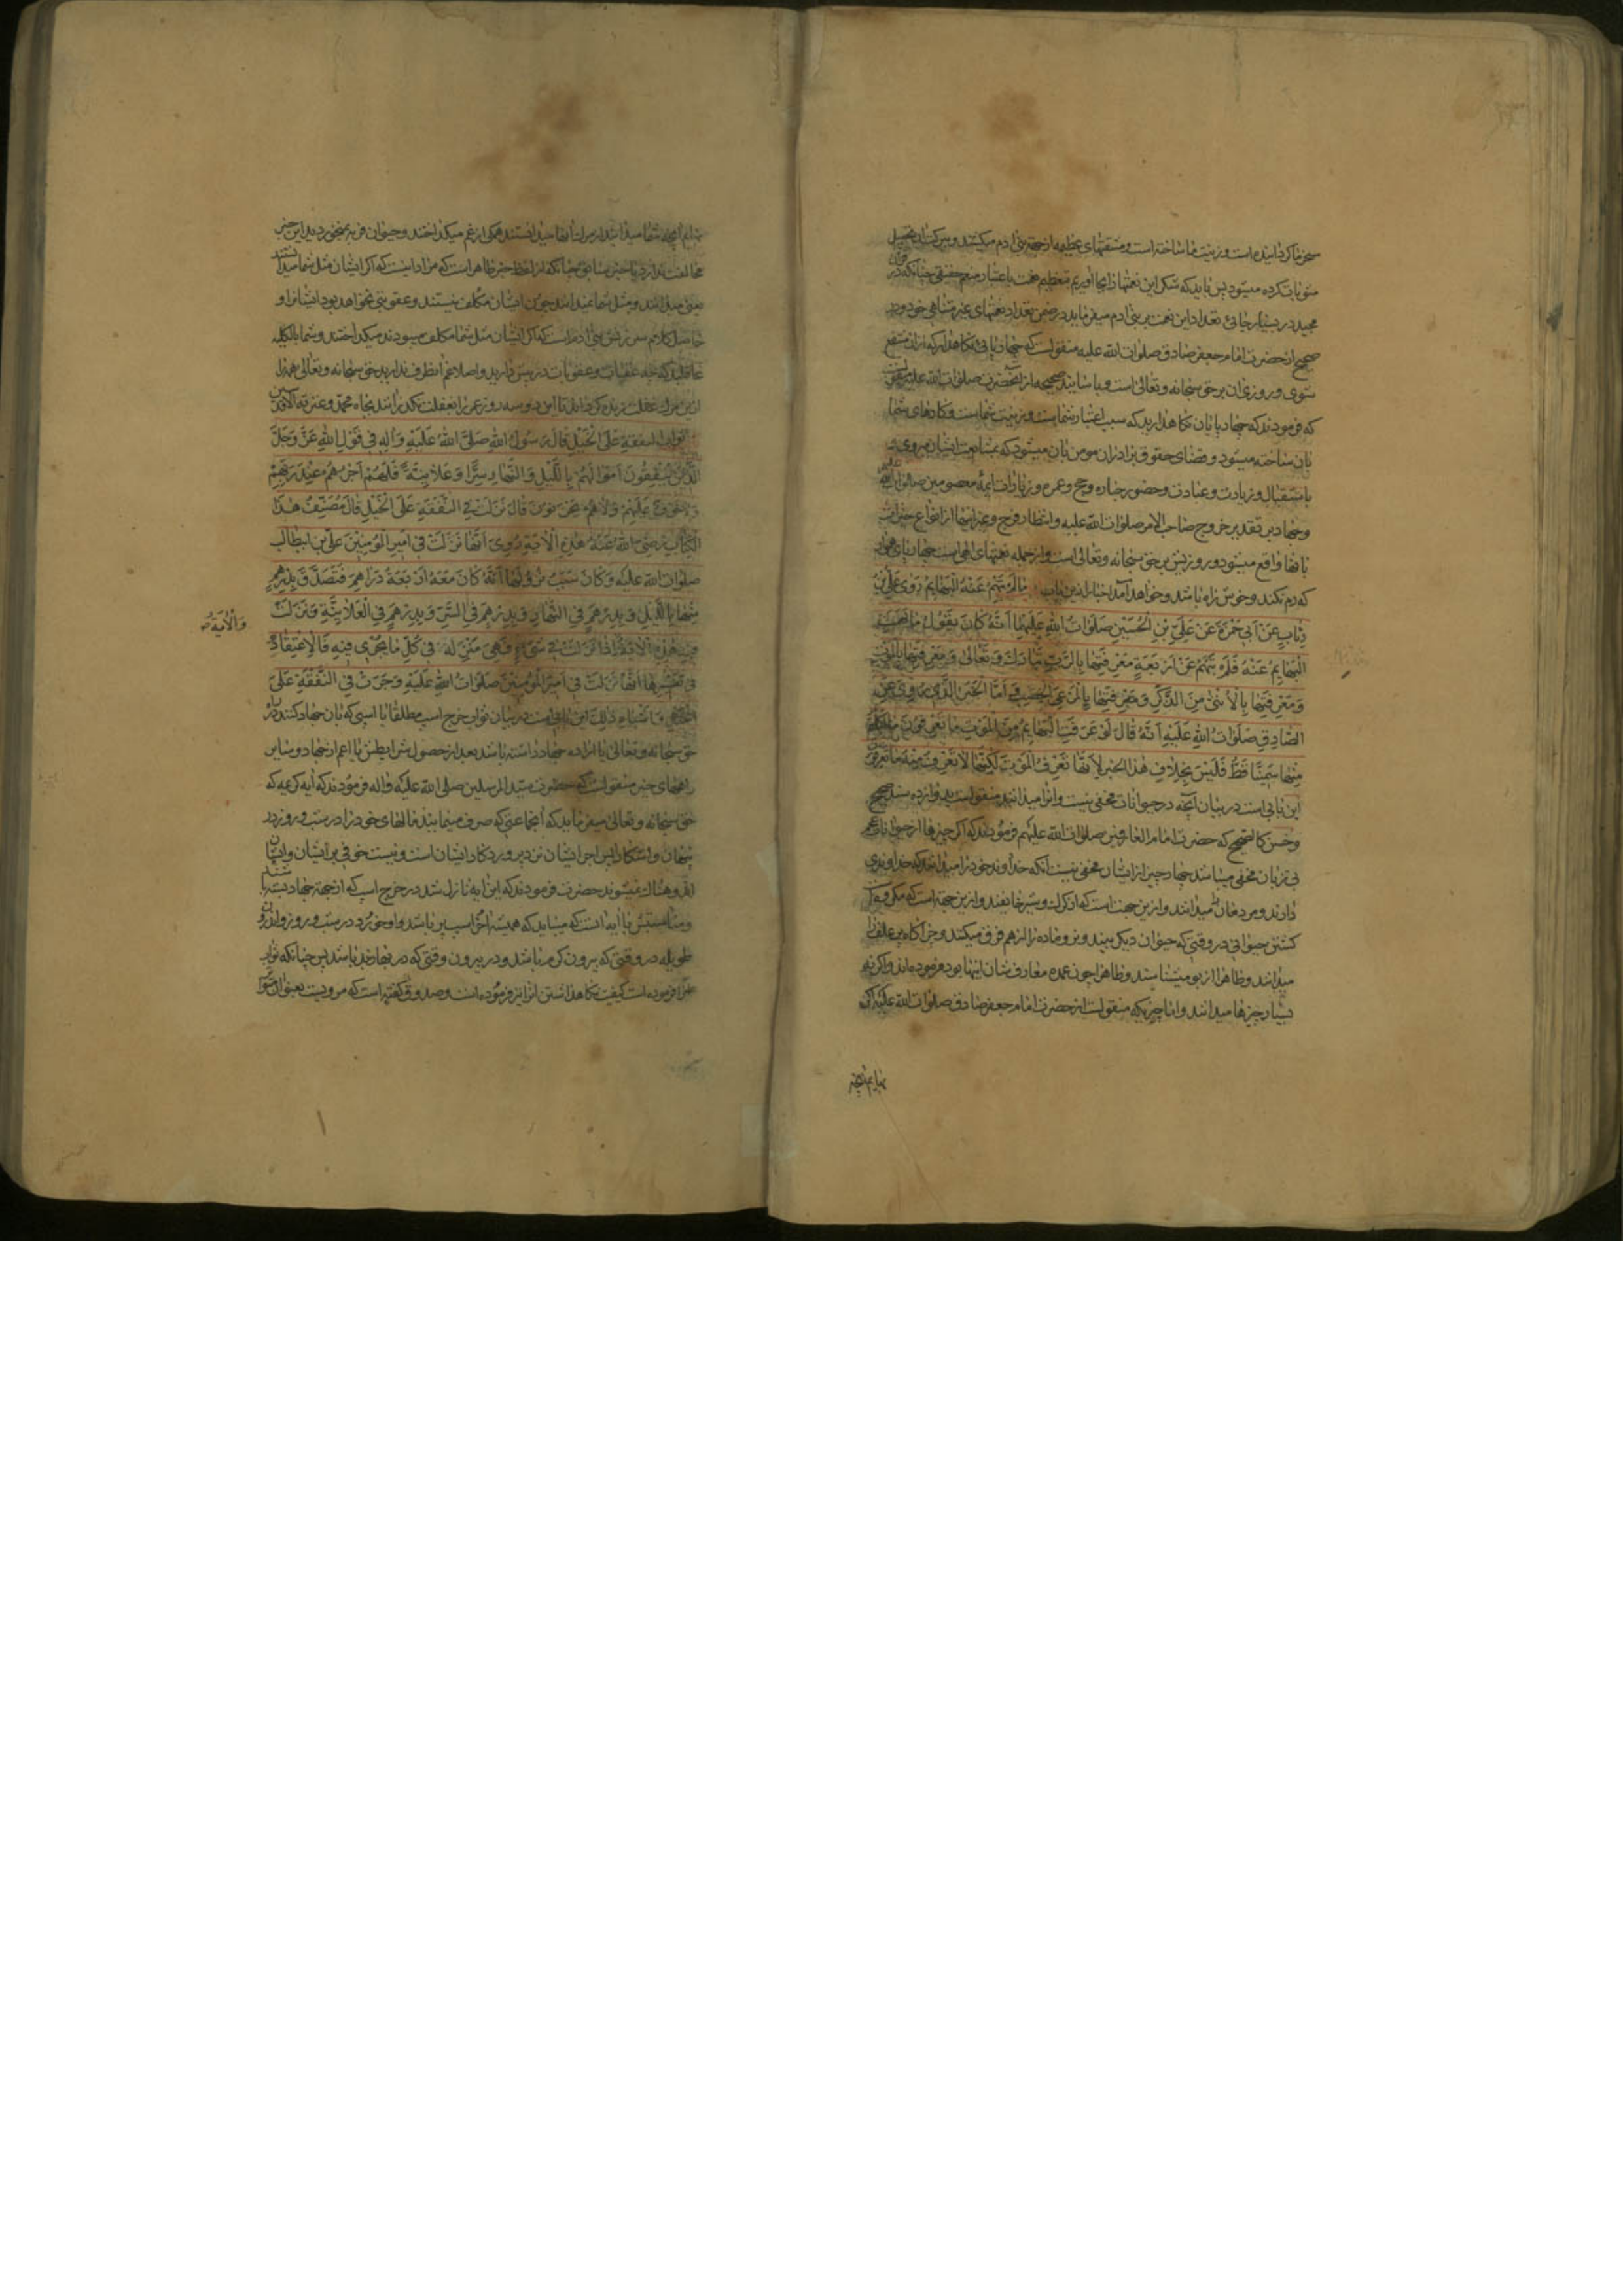 مسخر ما کردانیده است و زینت ما ساخته است و مشقتهای عظیمه از جهة بنی ادم میکشند و بیرکت ان تحصیل
مثوبات کرده میشود پس باید که شکر این نعمتها را بجا اوریم تعظیم نعمت باعتبار منعم حقیقی چنانکه در قران
مجید در بسیار جائی تعداد این نعمت بر بنی ادم میفرماید در ضمن تعداد نعمتهای غیر متناهی خود و در
صحیح از حضرت امام جعفر صادق صلوات الله علیه منقولست که چهارپائی نکاهدار که ازان منتفع
شوی و روزی ان بر حق سبحانه و تعالی است و باسانید صحیحه از انحضرت صلوات الله علیه منقولست
که فرمودند که چهارپایان نکاهدارید که سبب اعتبار شماست و زینت شماست و کارهای شما
بان ساخته میشود و قضای حقوق برادران مومن بان میشود که بمشایعت ایشان میروی و
باستقبال و زیارت و عیادت و حضور جنازه و حج و عمره و زیارات ائمه معصومین صلوات الله علیهم
و جهاد بر تقدیر خروج صاحب الامر صلوات الله علیه و انتظار فرج و غیر اینها از انواع خیرات
بانها واقع میشود و روزیش بر حق سبحانه و تعالی است و از جمله نعمتهای الهی است چهارپای هموار
که رم نکند و خوش راه باشد و خواهد آمد اخبار از این باب مَا لَمْ تُبْهَمْ عَنْهُ الْبَهَایِمُ رَوَی عَلِیُّ بْنُ
رِئَابٍ عَنْ اَبِی حَمْزَةَ عَنْ عَلِیِّ بْنِ الْحُسَیْنِ صَلَوَاتُ اللهِ عَلَیْهِمَا اَنَّهُ کَانَ یَقُولُ مَا بُهِمَتِ
الْبَهَایِمُ عَنْهُ فَلَمْ تُبْهَمْ عَنْ اَرْبَعَةٍ مَعْرِفَتِهَا بِالرَّبِّ تَبَارَكَ وَ تَعَالٰی وَ مَعْرِفَتِهَا بِالْمَوْتِ
وَ مَعْرِفَتِهَا بِالْاُنْثٰی مِنَ الذَّکَرِ وَ مَعْرِفَتِهَا بِالْمَرْعَی الْخَصِبِ فَاَمَّا الْخَبَرُ الَّذِی رُوِیَ عَنِ
الصَّادِقِ صَلَوَاتُ اللهِ عَلَیْهِ اَنَّهُ قَالَ لَوْ عَرَفَتِ الْبَهَایِمُ مِنَ الْمَوْتِ مَا تَعْرِفُونَ مَا اَکَلْتُمْ
مِنْهَا سَمِینًا قَطُّ فَلَیْسَ بِخِلَافِ هٰذَا الْخَبَرِ لِاَنَّهَا تَعْرِفُ الْمَوْتَ لٰکِنَّهَا لَا تَعْرِفُ مِنْهُ مَا تَعْرِفُونَ
این بابی است در بیان آنچه در حیوانات مخفی نیست و انرا میدانند منقولست بدوازده سند صحیح
و حسن کالصحیح که حضرت امام العارفین صلوات الله علیهم فرمودند که اکر چیزها از حیوانات
بی زبان مخفی میباشد چهار چیز از ایشان مخفی نیست آنکه خداوند خود را میدانند که خداوندی
دارند و مردن را میدانند و ازین جهت است که از کرك و شیر خایفند و ازین جهة است که
کشتن حیوانی در وقتی که حیوان دیکر بیند و نر و ماده را از هم فرق میکنند و چراکاه پر علف را
میدانند و ظاهرا از بو میشناسند و ظاهرا چون عمده معارف شان اینها بود فرموده اند و اکر نه
بسیار چیزها میدانند و اما چیزیکه منقولست از حضرت امام جعفر صادق صلوات الله علیه که اکر
بهایم آنچه
بهایم آنچه شما میدانید از مرك انها میدانستند همکی از غم میکداختند و حیوان فربه نمیخوردید این خبر
مخالفت ندارد با خبر سابق چنانکه از لفظ خبر ظاهر است که مراد اینست که اکر ایشان مثل شما میدانستند
یعنی میدانند و مثل شما نمیدانند چون ایشان مکلف نیستند و عقوبتی نخواهد بود ایشانرا و
حاصل کلام سرزنش بنی ادم است که اکر ایشان مثل شما مکلف میبودند میکداختند و شما بالکلیه
غافلید که چه عقبات و عقوبات در پیش دارید و اصلا غم آنطرف ندارید حق سبحانه و تعالی همه را
ازین مرك غفلت زنده کرداند تا این دو سه روز عمر را بغفلت نکذرانند بجاه محمد و عترته الاقدسین
ثواب النفقة عَلَی الْخَیْلِ قَالَ رَسُولُ اللهِ صَلَّی اللهُ عَلَیْهِ وَ اٰلِهِ فِی قَوْلِ اللهِ عَزَّ وَ جَلَّ
الَّذِینَ یُنْفِقُونَ اَمْوَالَهُمْ بِاللَّیْلِ وَ النَّهَارِ سِرًّا وَ عَلَانِیَةً فَلَهُمْ اَجْرُهُمْ عِنْدَ رَبِّهِمْ
وَ لَا خَوْفٌ عَلَیْهِمْ وَ لَا هُمْ یَحْزَنُونَ قَالَ نَزَلَتْ فِی النَّفَقَةِ عَلَی الْخَیْلِ قَالَ مُصَنِّفُ هٰذَا
الْکِتَابِ رَضِیَ اللهُ عَنْهُ هٰذِهِ الْاٰیَةُ رُوِیَ اَنَّهَا نَزَلَتْ فِی اَمِیرِ الْمُؤْمِنِینَ عَلِیِّ بْنِ اَبِیطَالِب
صلوات الله علیه وَ کَانَ سَبَبُ نُزُولِهَا اَنَّهُ کَانَ مَعَهُ اَرْبَعَةُ دَرَاهِمَ فَتَصَدَّقَ بِدِرْهَمٍ
مِنْهَا بِاللَّیْلِ وَ بِدِرْهَمٍ فِی النَّهَارِ وَ بِدِرْهَمٍ فِی السِّرِّ وَ بِدِرْهَمٍ فِی الْعَلَانِیَةِ فَنَزَلَتْ
وَ الْاٰیَةُ
فِیهِ هٰذِهِ الْاٰیَةُ اِذَا نَزَلَتْ فِی شَیْءٍ فَهِیَ مُنْزَلَةٌ فِی کُلِّ مَا یَجْرِی فِیهِ فَالْاِعْتِقَادُ
فِی تَفْسِیرِهَا اَنَّهَا نَزَلَتْ فِی اَمِیرِ الْمُؤْمِنِینَ صَلَوَاتُ اللهِ عَلَیْهِ وَ جَرَتْ فِی النَّفَقَةِ عَلَی
الْخَیْلِ وَ اَشْبَاهِ ذٰلِكَ این بابی است در بیان ثواب خرج اسب مطلقا یا اسبی که بان جهاد کنند در راه
حق سبحانه و تعالی یا اراده جهاد داشته باشد بعد از حصول شرایطش یا اعم از جهاد و سایر
راههای خیر منقولست که حضرت سید المرسلین صلی الله علیه و اله فرمودند که ایه کریمه که
حق سبحانه و تعالی میفرماید که آنجماعتی که صرف مینمایند مالهای خود را در شب و روز در
پنهان و اشکارا پس اجر ایشان نزد پروردکار ایشان است و نیست خوفی بر ایشان و ایشان
اندوهناك نمیشوند حضرت فرمودند که این ایه نازل شد در خرج اسب که از جهة جهاد بسته باشند
و مناسبتش با ایه انست که میباید که همیشه اخر اسب پر باشد و او خورد در شب و روز و اندرون
طویله در وقتی که بیرون کرم باشد و در بیرون وقتی که در بهار خید باشد پس چنانکه ثواب
علف فرموده است کیفیت نکاهداشتن انرا نیز فرموده است و صدوق کفته است که مرویست بعنوان